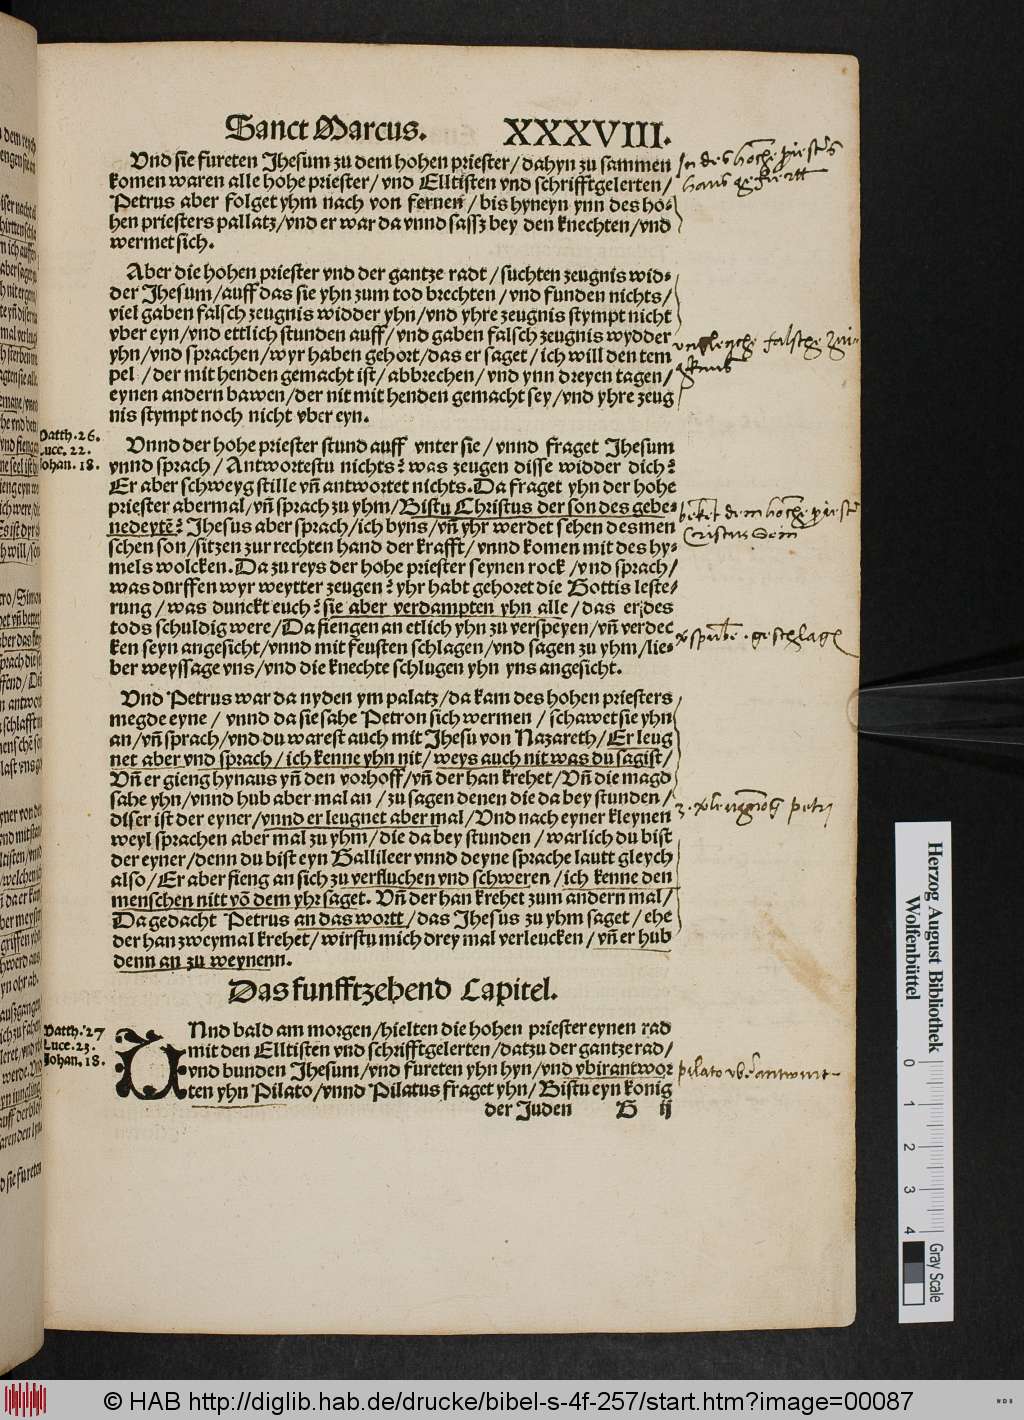 Sanct Marcus. XXXVIII.
Vnd sie fureten Jhesum zu dem hohen priester/ dahyn zu sammen
komen waren alle hohe priester/ vnd Elltisten vnd schrifftgelerten/
Petrus aber folget yhm nach von fernen/ bis hyneyn ynn des ho⸗
hen priesters pallatz/ vnd er war da vnnd sassz bey den knechten/ vnd
wermet sich.
Aber die hohen priester vnd der gantze radt/ suchten zeugnis wid⸗
der Jhesum/ auff das sie yhn zum tod brechten/ vnd funden nichts/
viel gaben falsch zeugnis widder yhn/ vnd yhre zeugnis stympt nicht
vber eyn/ vnd ettlich stunden auff/ vnd gaben falsch zeugnis wydder
yhn/ vnd sprachen/ wyr haben gehort/ das er saget/ ich will den tem
pel/ der mit henden gemacht ist/ abbrechen/ vnd ynn dreyen tagen/
eynen andern bawen/ der nit mit henden gemacht sey/ vnd yhre zeug
nis stympt noch nicht vber eyn.
Matth. 26.
Luce. 22.
Johan. 18.
Vnnd der hohe priester stund auff vnter sie/ vnnd fraget Jhesum
vnnd sprach/ Antwortestu nichts? was zeugen disse widder dich?
Er aber schweyg stille vñ antwortet nichts. Da fraget yhn der hohe
priester abermal/ vñ sprach zu yhm/ Bistu Christus der son des gebe⸗
nedeyte? Jhesus aber sprach/ ich byns/ vñ yhr werdet sehen des men
schen son/ sitzen zur rechten hand der krafft/ vnnd komen mit des hy⸗
mels wolcken. Da zu reys der hohe priester seynen rock/ vnd sprach/
was durffen wyr weytter zeugen? yhr habt gehoret die Gottis leste⸗
rung/ was dunckt euch? sie aber verdampten yhn alle/ das er des
tods schuldig were/ Da fiengen an etlich yhn zu verspeyen/ vñ verdec
ken seyn angesicht/ vnnd mit feusten schlagen/ vnd sagen zu yhm/ lie⸗
ber weyssage vns/ vnd die knechte schlugen yhn yns angesicht.
Vnd Petrus war da nyden ym palatz/ da kam des hohen priesters
megde eyne/ vnnd da sie sahe Petron sich wermen/ schawet sie yhn
an/ vñ sprach/ vnd du warest auch mit Jhesu von Nazareth/ Er leug
net aber vnd sprach/ ich kenne yhn nit/ weys auch nit was du sagist/
Vñ er gieng hynaus yñ den vorhoff/ vñ der han krehet/ Vñ die magd
sahe yhn/ vnnd hub aber mal an/ zu sagen denen die da bey stunden/
diser ist der eyner/ vnnd er leugnet aber mal/ Vnd nach eyner kleynen
weyl sprachen aber mal zu yhm/ die da bey stunden/ warlich du bist
der eyner/ denn du bist eyn Gallileer vnnd deyne sprache lautt gleych
also/ Er aber fieng an sich zu verfluchen vnd schweren/ ich kenne den
menschen nitt võ dem yhr saget. Vñ der han krehet zum andern mal/
Da gedacht Petrus an das wortt/ das Jhesus zu yhm saget/ ehe
der han zweymal krehet/ wirstu mich drey mal verleucken/ vñ er hub
denn an zu weynenn.
Das funfftzehend Capitel.
Matth. 27
Luce. 23.
Johan. 18.
VNnd bald am morgen/ hielten die hohen priester eynen rad
mit den Elltisten vnd schrifftgelerten/ datzu der gantze rad/
vnd bunden Jhesum/ vnd fureten yhn hyn/ vnd vbirantwor
ten yhn Pilato/ vnnd Pilatus fraget yhn/ Bistu eyn konig
der Juden G ij
In des hoche priesters
haus gefuertt
falsche
dem hoche priester
Cristus Sein
petri
pilato vberantwurt
Herzog August Bibliothek
Wolfenbüttel
0 1 2 3 4
Gray Scale
© HAB http://diglib.hab.de/drucke/bibel-s-4f-257/start.htm?image=00087